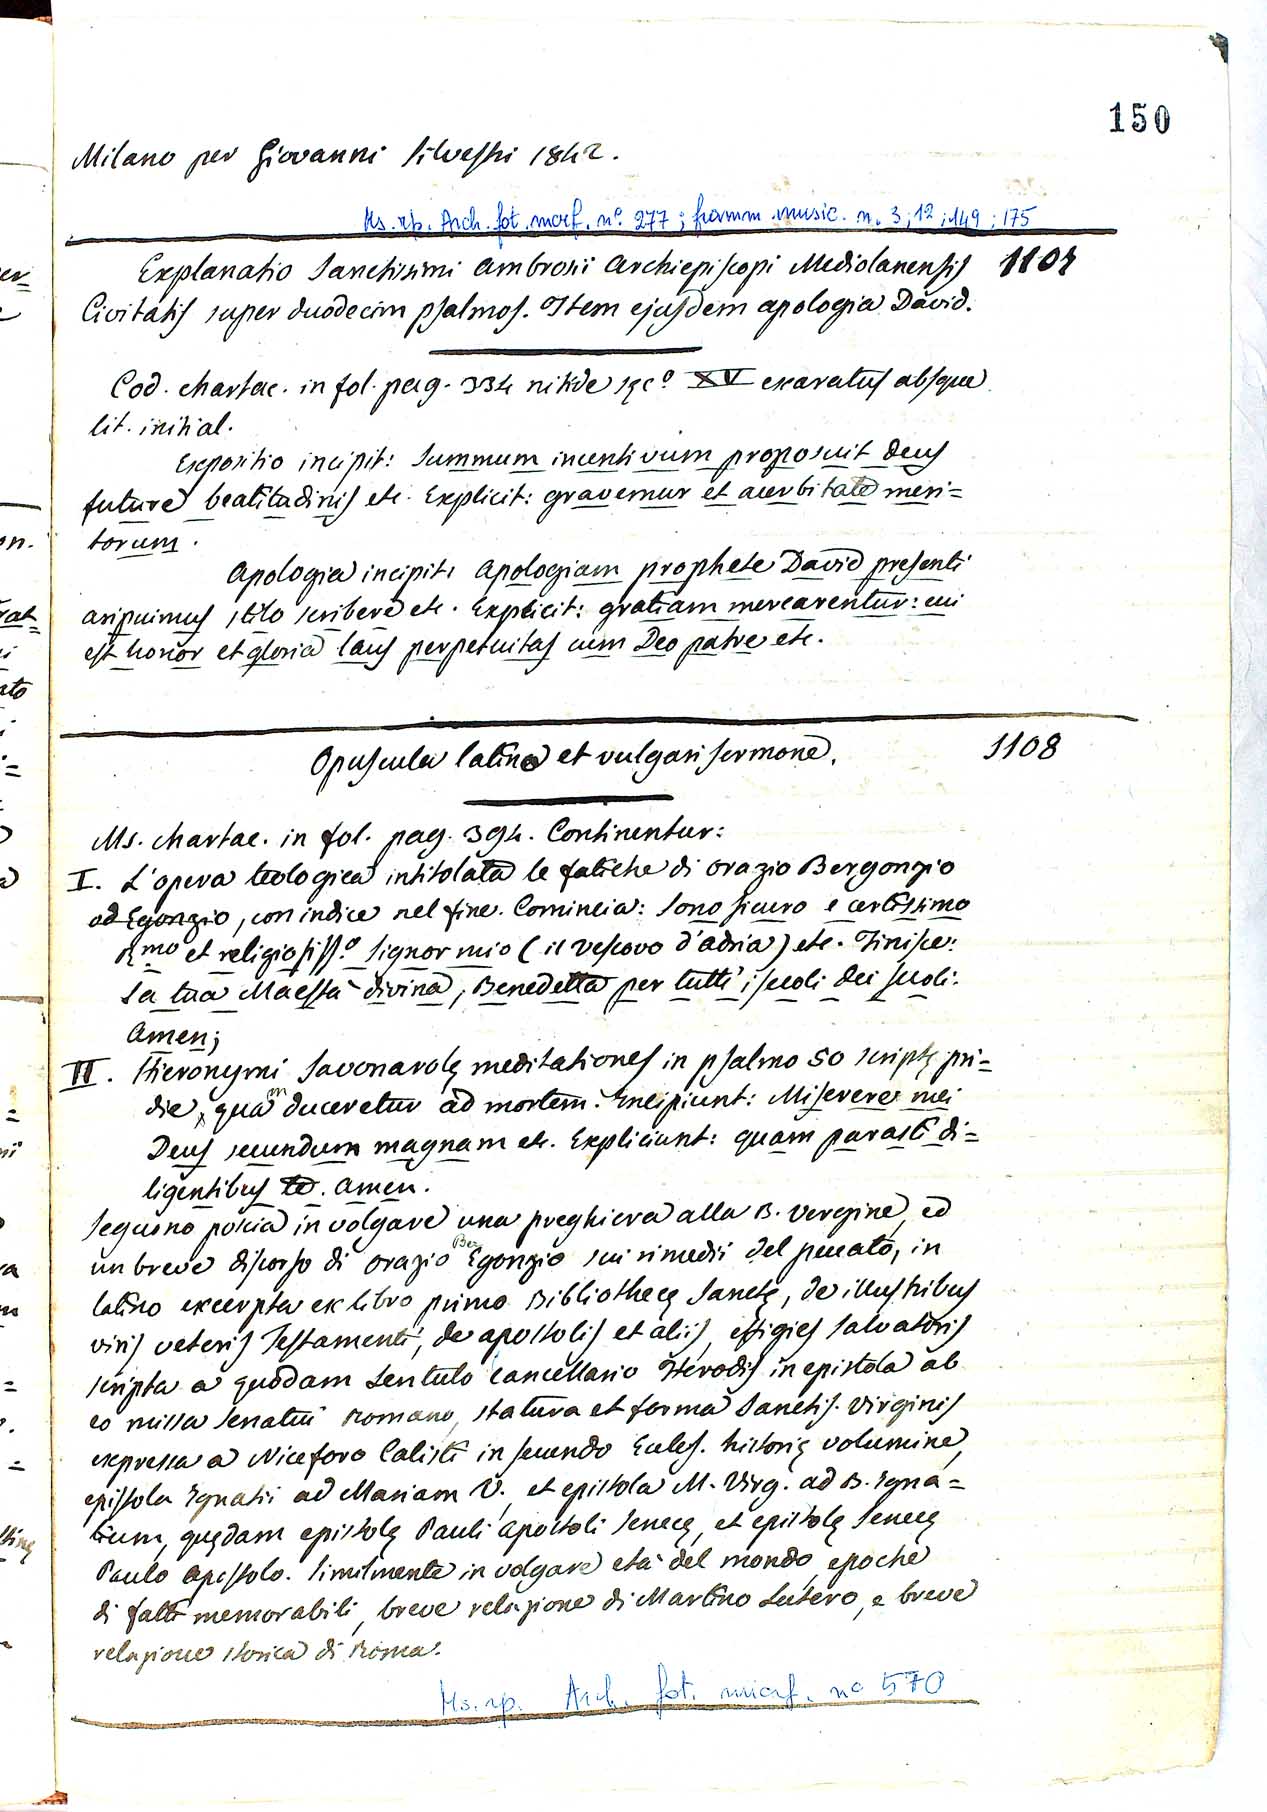 150
Milano per Giovanni Silvestri 1842.
Ms. rip. Arch. fot. microf. n.º 277; framm. music. n. 3; 12; 149; 175
Explanatio Sanctissimi Ambrosii Archiepiscopi Mediolanensis 1107
Civitatis super duodecim psalmos. Item ejusdem apologia David.
Cod. chartac. in fol. pag. 334 nitide sęcº XV exaratus absque
lit. initial.
Expositio incipit: Summum incentivum proposuit deus
future beatitudinis etc. Explicit: gravemur et acerbitate meri=
torum.
Apologia incipit: Apologiam prophete David presenti
aripuimus stilo scribere etc. Explicit: gratiam mercarentur: cui
est honor et gloria laus perpetuitas cum Deo patre etc.
Opuscula latino et vulgari sermone. 1108
Ms. chartac. in fol. pag. 394. Continentur:
I. L'opera teologica intitolata le fatiche di Orazio Bergonzio
od Egonzio, con indice nel fine. Comincia: Sono sicuro e certissimo
R.mo et religiosiss.º Signor mio (il vescovo d'Adria) etc. Finisce:
La tua Maestà divina, Benedetta per tutti i secoli dei secoli.
Amen;
II. Hieronymi Savonarolę meditationes in psalmo 50 scriptę pri=
die, quam duceretur ad mortem. Incipiunt: Miserere mei
Deus secundum magnam etc. Expliciunt: quam parasti di=
ligentibus te. Amen.
Seguono poscia in volgare una preghiera alla B. Vergine, ed
un breve discorso di Orazio Ber Egonzio sui rimedii del peccato, in
latino excerpta ex libro primo Bibliothecę Sanctę, de illustribus
viris veteris Testamenti, de apostolis et aliis, effigies Salvatoris
scripta a quodam Lentulo cancellario Herodis in epistola ab
eo missa Senatui Romano, statura et forma Sanctis. Virginis
expressa a Niceforo Calisti in secundo Eccles. historię volumine,
epistola Ignatii ad Mariam V., et epistola M. Virg. ad B. Igna=
tium, quędam epistolę Pauli Apostoli Senecę, et epistolę Senecę
Paulo Apostolo. Similmente in volgare età del mondo, epoche
di fatti memorabili, breve relazione di Martino Lutero, e breve
relazione storica di Roma.
Ms. rip. Arch. fot. microf. nº 570